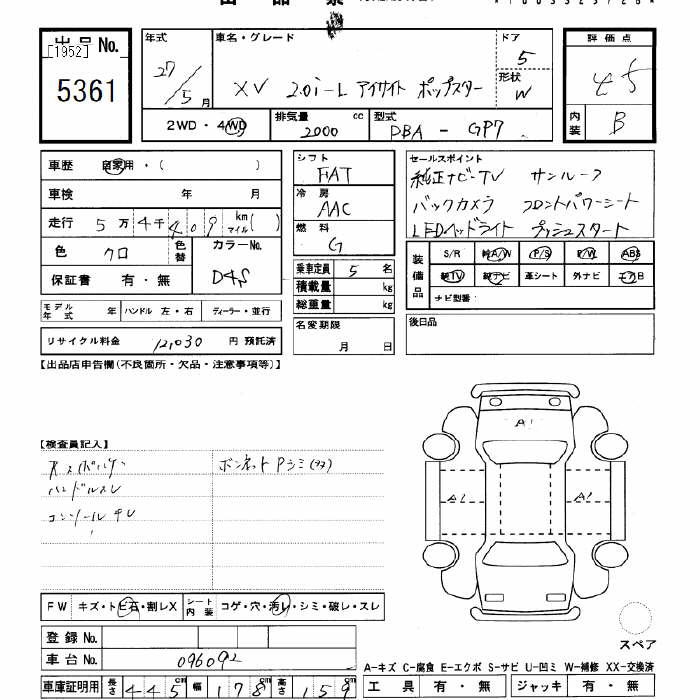 出品票
出品No.
[1952]
5361
年式 27/5月
車名・グレード
XV 2.0i-L アイサイト ポップスター
ドア 5
形状 W
評価点 4.5
内装 B
2WD・4WD
排気量 2000 cc
型式 DBA - GP7
車歴 自家用・( )
車検 年 月
走行 5万4千409 km マイル ( )
色 クロ
色替
カラーNo. D4S
保証書 有・無
モデル年式 年 ハンドル 左・右 ディーラー・並行
リサイクル料金 12,030 円 預託済
シフト FAT
冷房 AAC
燃料 G
乗車定員 5 名
積載量 kg
総重量 kg
名変期限
月 日
セールスポイント
純正ナビ・TV サンルーフ
バックカメラ フロントパワーシート
LEDヘッドライト プッシュスタート
装備品
S/R 純A/W P/S P/W ABS
純TV 純ナビ 革シート 外ナビ エアB
ナビ型番:
後日品
【出品店申告欄(不良箇所・欠品・注意事項等)】
【検査員記入】
Rスポイラー
ハンドルスレ
コンソールキレ
ボンネットPシミ(タタ)
A1
A1
A1
FW キズ・トビ石・割レX
シート内装 コゲ・穴・汚レ・シミ・破レ・スレ
登録No.
車台No. 096092
車庫証明用 長さ 445 cm 幅 178 cm 高さ 159 cm
スペア
A-キズ C-腐食 E-エクボ S-サビ U-凹ミ W-補修 XX-交換済
工具 有・無 ジャッキ 有・無